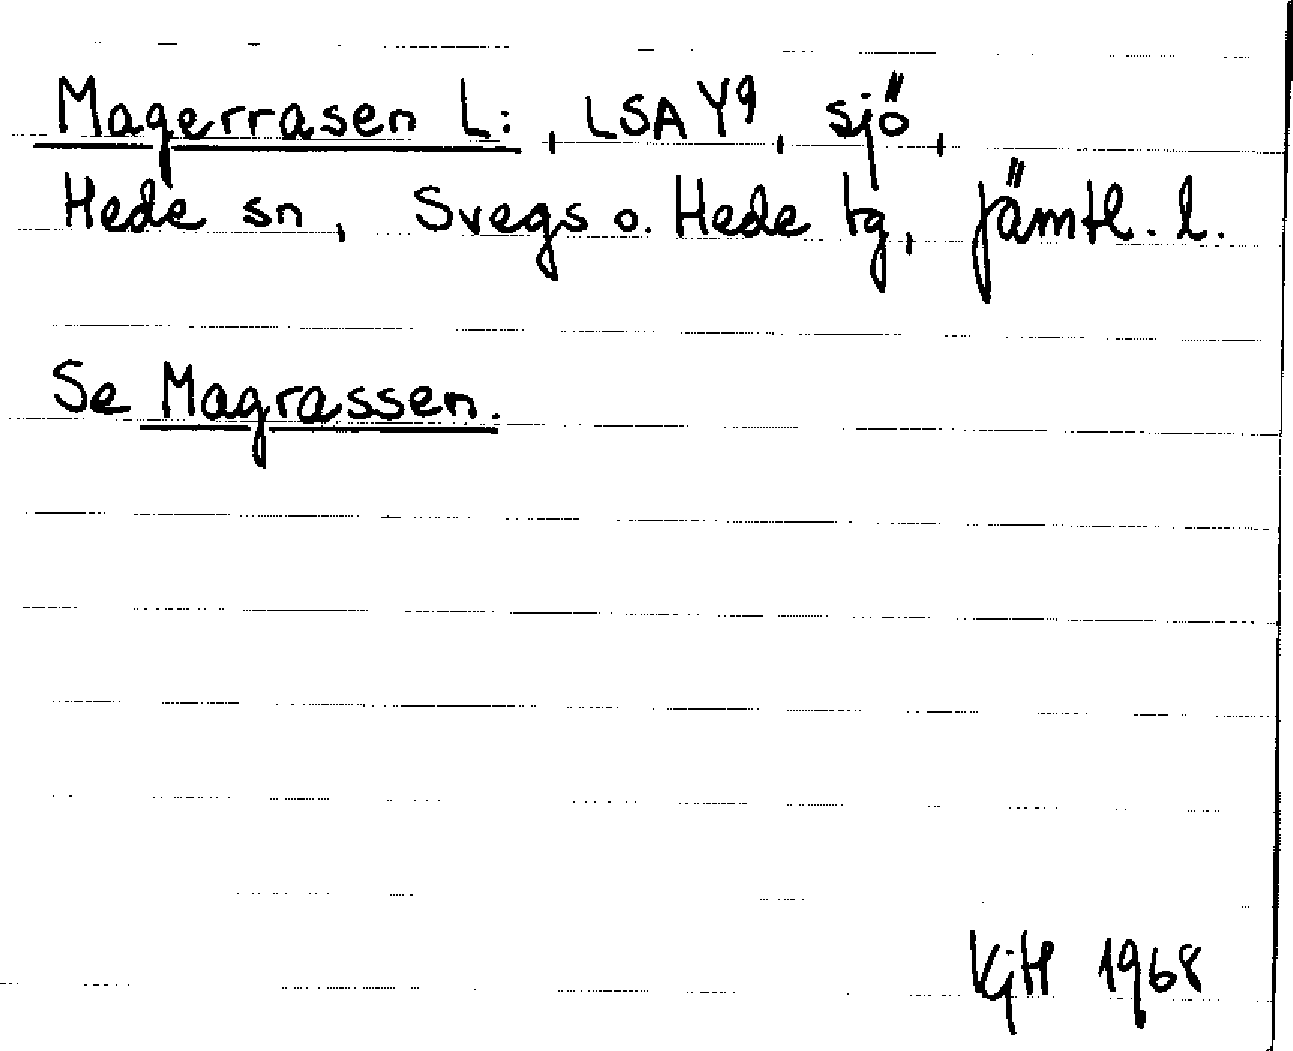 Magerrasen L:, LSA Y9, sjö,
Hede sn, Svegs o. Hede tg, Jämtl. l.
Se Magrassen.
KjH 1968